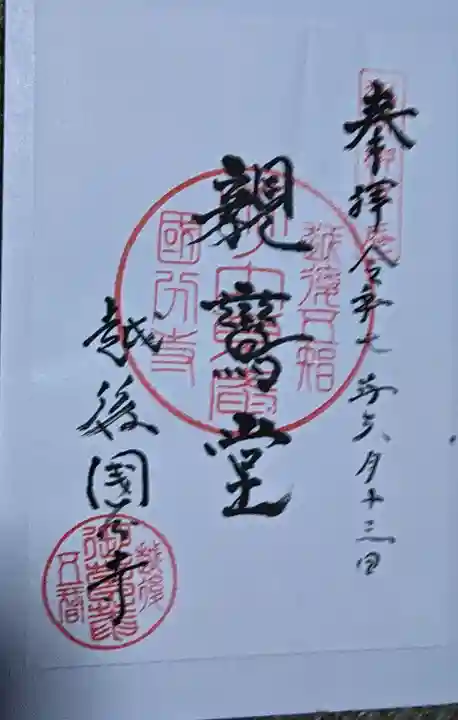 奉拝 令和七年六月十三日
親鸞堂
越後五智
國分寺
越後国分寺
越後
五智